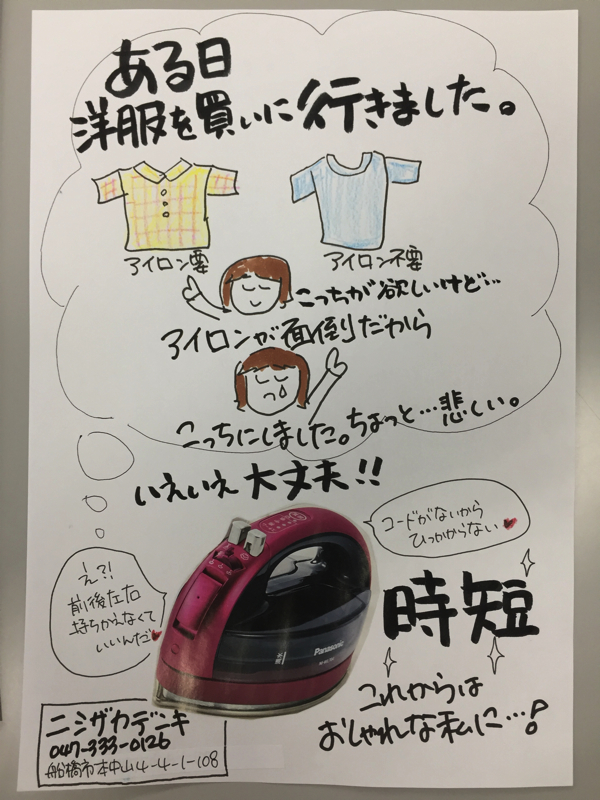 ある日
洋服を買いに行きました。
アイロン要
アイロン不要
こっちが欲しいけど…
アイロンが面倒だから
こっちにしました。ちょっと…悲しい。
いえいえ大丈夫!!
コードがないから
ひっかからない♥
え?!
前後左右
持ちかえなくて
いいんだ♥
Panasonic
時短
これからは
おしゃれな私に…!
ニシザカデンキ
047-333-0126
船橋市本中山4-4-1-108